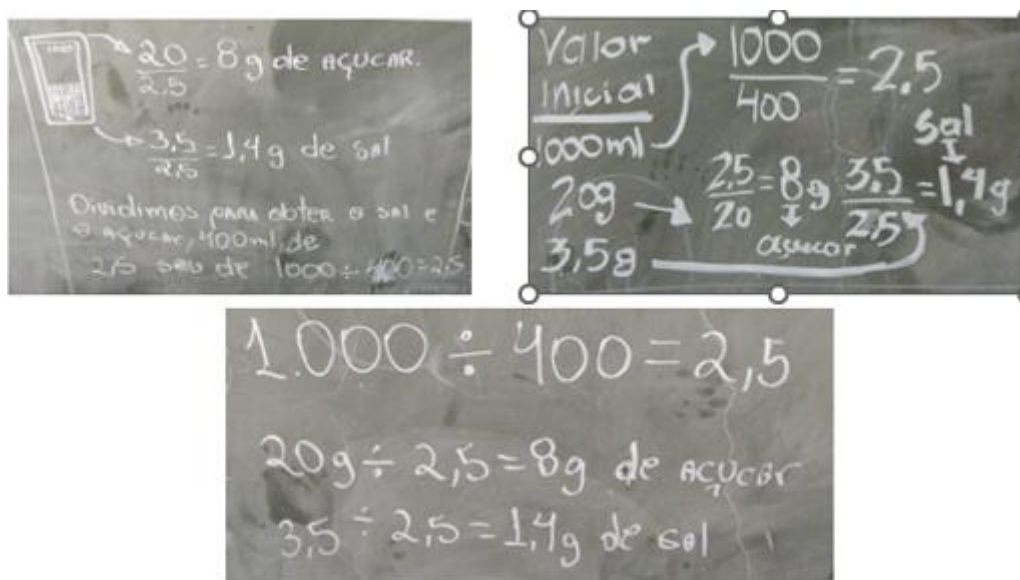 20/2,5 = 8g de AÇUCAR.
3,5/2,5 = 1,4g de sal
Dividimos para obter o sal e
o açucar, 400ml, de
2,5 de 1000 ÷ 400 = 2,5
Valor
Inicial
1000ml
20g
3,5g
1000/400 = 2,5
2,5/20 = 8g
açucar
sal
3,5/2,5 = 1,4g
1.000 ÷ 400 = 2,5
20g ÷ 2,5 = 8g de AÇUCAR
3,5 ÷ 2,5 = 1,4g de sal